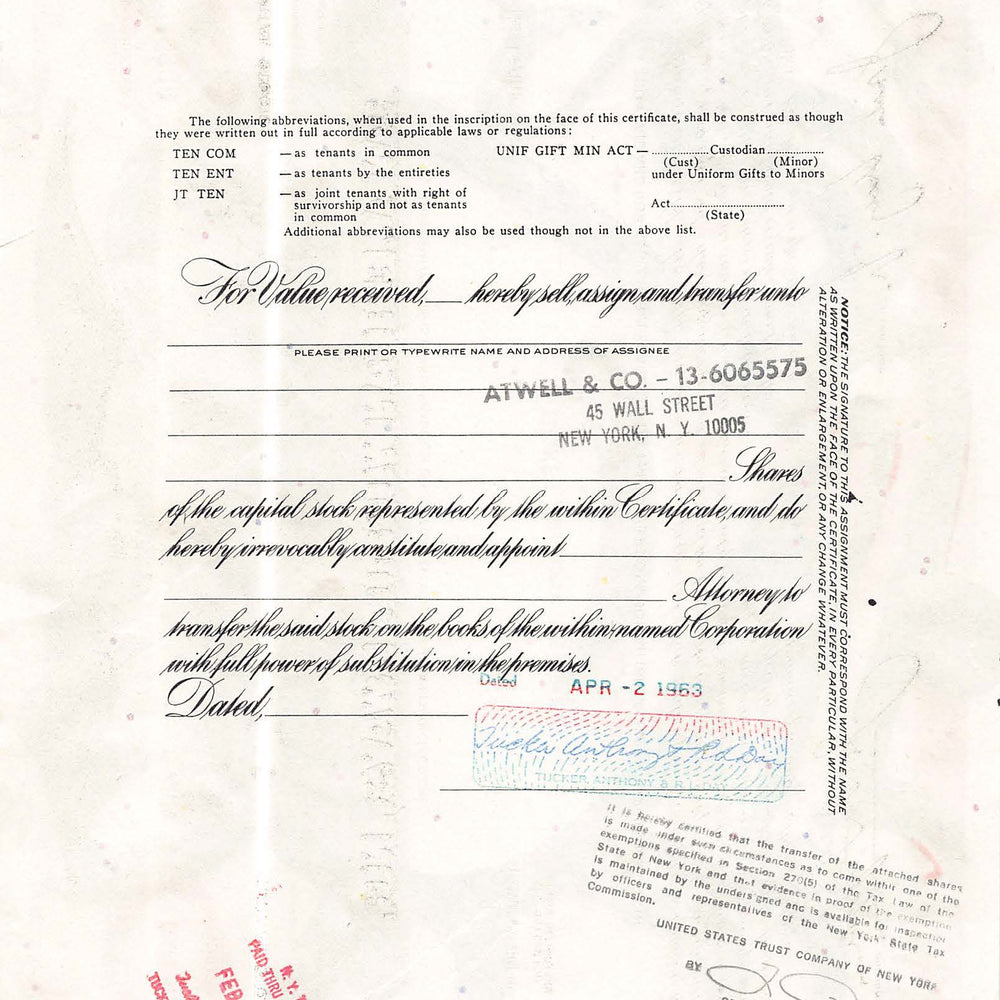 The following abbreviations, when used in the inscription on the face of this certificate, shall be construed as though
they were written out in full according to applicable laws or regulations:
TEN COM — as tenants in common
TEN ENT — as tenants by the entireties
JT TEN — as joint tenants with right of
survivorship and not as tenants
in common
UNIF GIFT MIN ACT — ....................Custodian....................
(Cust) (Minor)
under Uniform Gifts to Minors
Act........................................
(State)
Additional abbreviations may also be used though not in the above list.
For Value received, ____ hereby sell, assign and transfer unto
PLEASE PRINT OR TYPEWRITE NAME AND ADDRESS OF ASSIGNEE
ATWELL & CO. – 13-6065575
45 WALL STREET
NEW YORK, N. Y. 10005
Shares
of the capital stock represented by the within Certificate, and do
hereby irrevocably constitute and appoint
Attorney to
transfer the said stock on the books of the within named Corporation
with full power of substitution in the premises.
Dated APR -2 1963
Dated,
Tucker Anthony & R L Day
TUCKER, ANTHONY & R. L. DAY
NOTICE: THE SIGNATURE TO THIS ASSIGNMENT MUST CORRESPOND WITH THE NAME
AS WRITTEN UPON THE FACE OF THE CERTIFICATE, IN EVERY PARTICULAR, WITHOUT
ALTERATION OR ENLARGEMENT, OR ANY CHANGE WHATEVER.
It is hereby certified that the transfer of the attached shares
is made under such circumstances as to come within one of the
exemptions specified in Section 270(5) of the Tax Law of the
State of New York and that evidence in proof of the exemption
is maintained by the undersigned and is available for inspection
by officers and representatives of the New York State Tax
Commission.
UNITED STATES TRUST COMPANY OF NEW YORK
BY
N. Y.
PAID THRU
FEB
TUCK